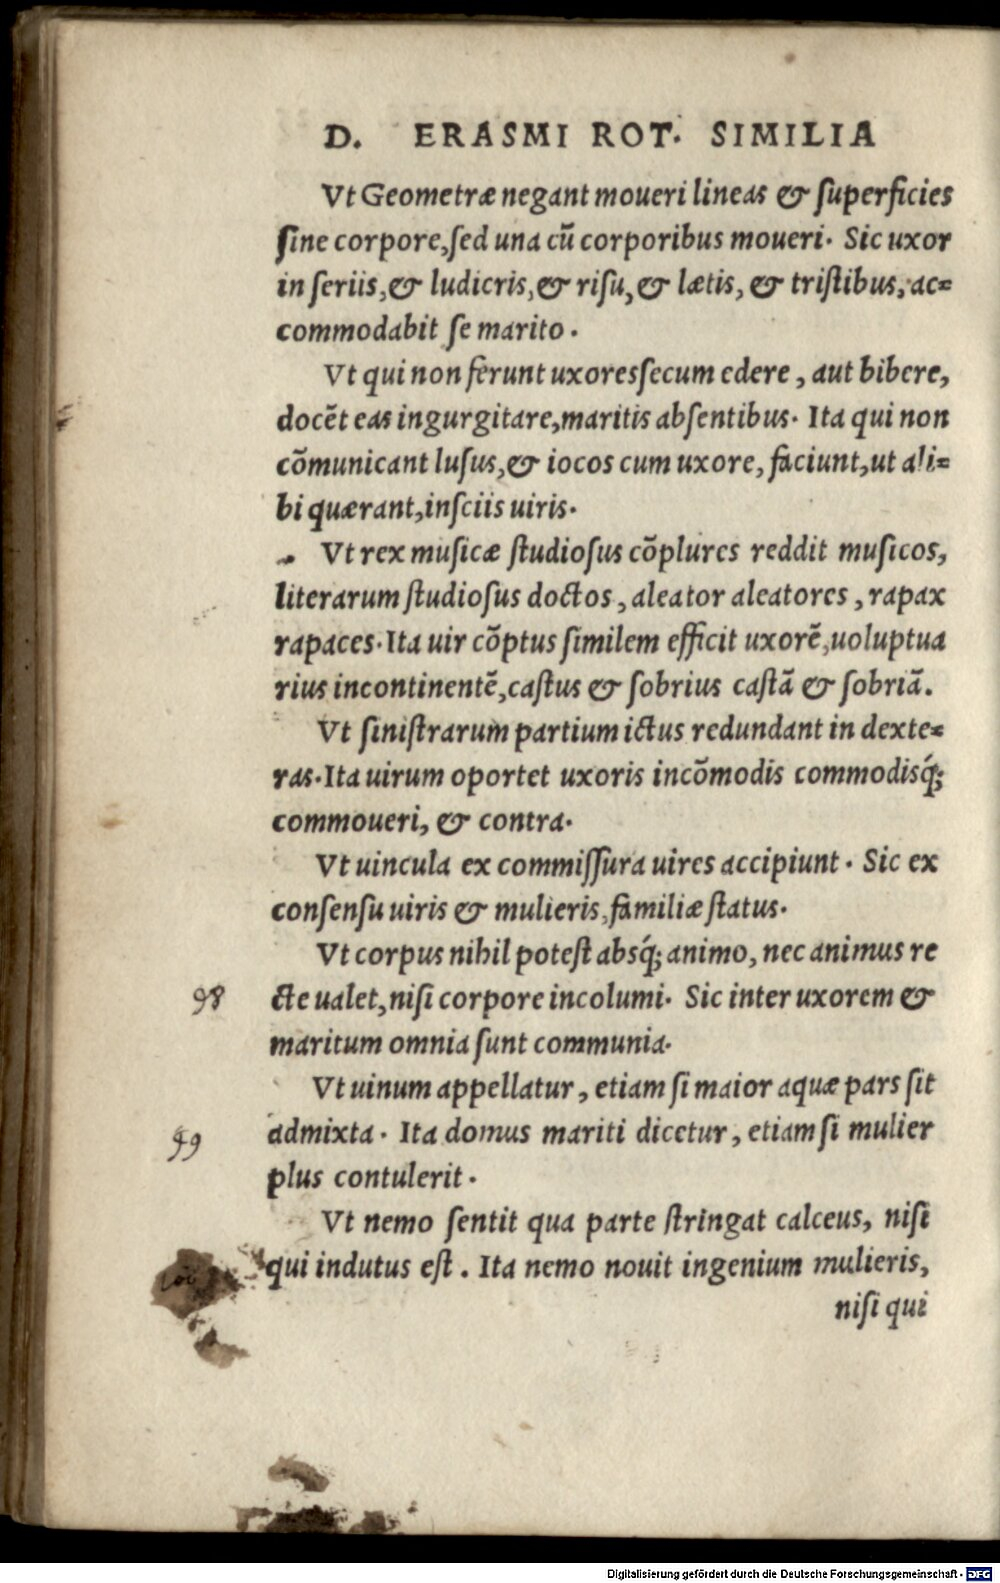 D. ERASMI ROT. SIMILIA
Vt Geometræ negant moueri lineas & ſuperficies
ſine corpore, ſed una cū corporibus moueri. Sic uxor
in ſeriis, & ludicris, & riſu, & lætis, & triſtibus, ac=
commodabit ſe marito.
Vt qui non ferunt uxores ſecum edere, aut bibere,
docēt eas ingurgitare, maritis abſentibus. Ita qui non
cōmunicant luſus, & iocos cum uxore, faciunt, ut ali=
bi quærant, inſciis uiris.
Vt rex muſicæ ſtudioſus cōplures reddit muſicos,
literarum ſtudioſus doctos, aleator aleatores, rapax
rapaces. Ita uir cōptus ſimilem efficit uxorē, uoluptua
rius incontinentē, caſtus & ſobrius caſtā & ſobriā.
Vt ſiniſtrarum partium ictus redundant in dexte=
ras. Ita uirum oportet uxoris incōmodis commodisq́;
commoueri, & contra.
Vt uincula ex commiſſura uires accipiunt. Sic ex
conſenſu uiris & mulieris, familiæ ſtatus.
Vt corpus nihil poteſt absq́; animo, nec animus re
98 cte ualet, niſi corpore incolumi. Sic inter uxorem &
maritum omnia ſunt communia.
Vt uinum appellatur, etiam ſi maior aquæ pars ſit
99 admixta. Ita domus mariti dicetur, etiam ſi mulier
plus contulerit.
Vt nemo ſentit qua parte ſtringat calceus, niſi
qui indutus eſt. Ita nemo nouit ingenium mulieris,
niſi qui
Digitalisierung gefördert durch die Deutsche Forschungsgemeinschaft - DFG